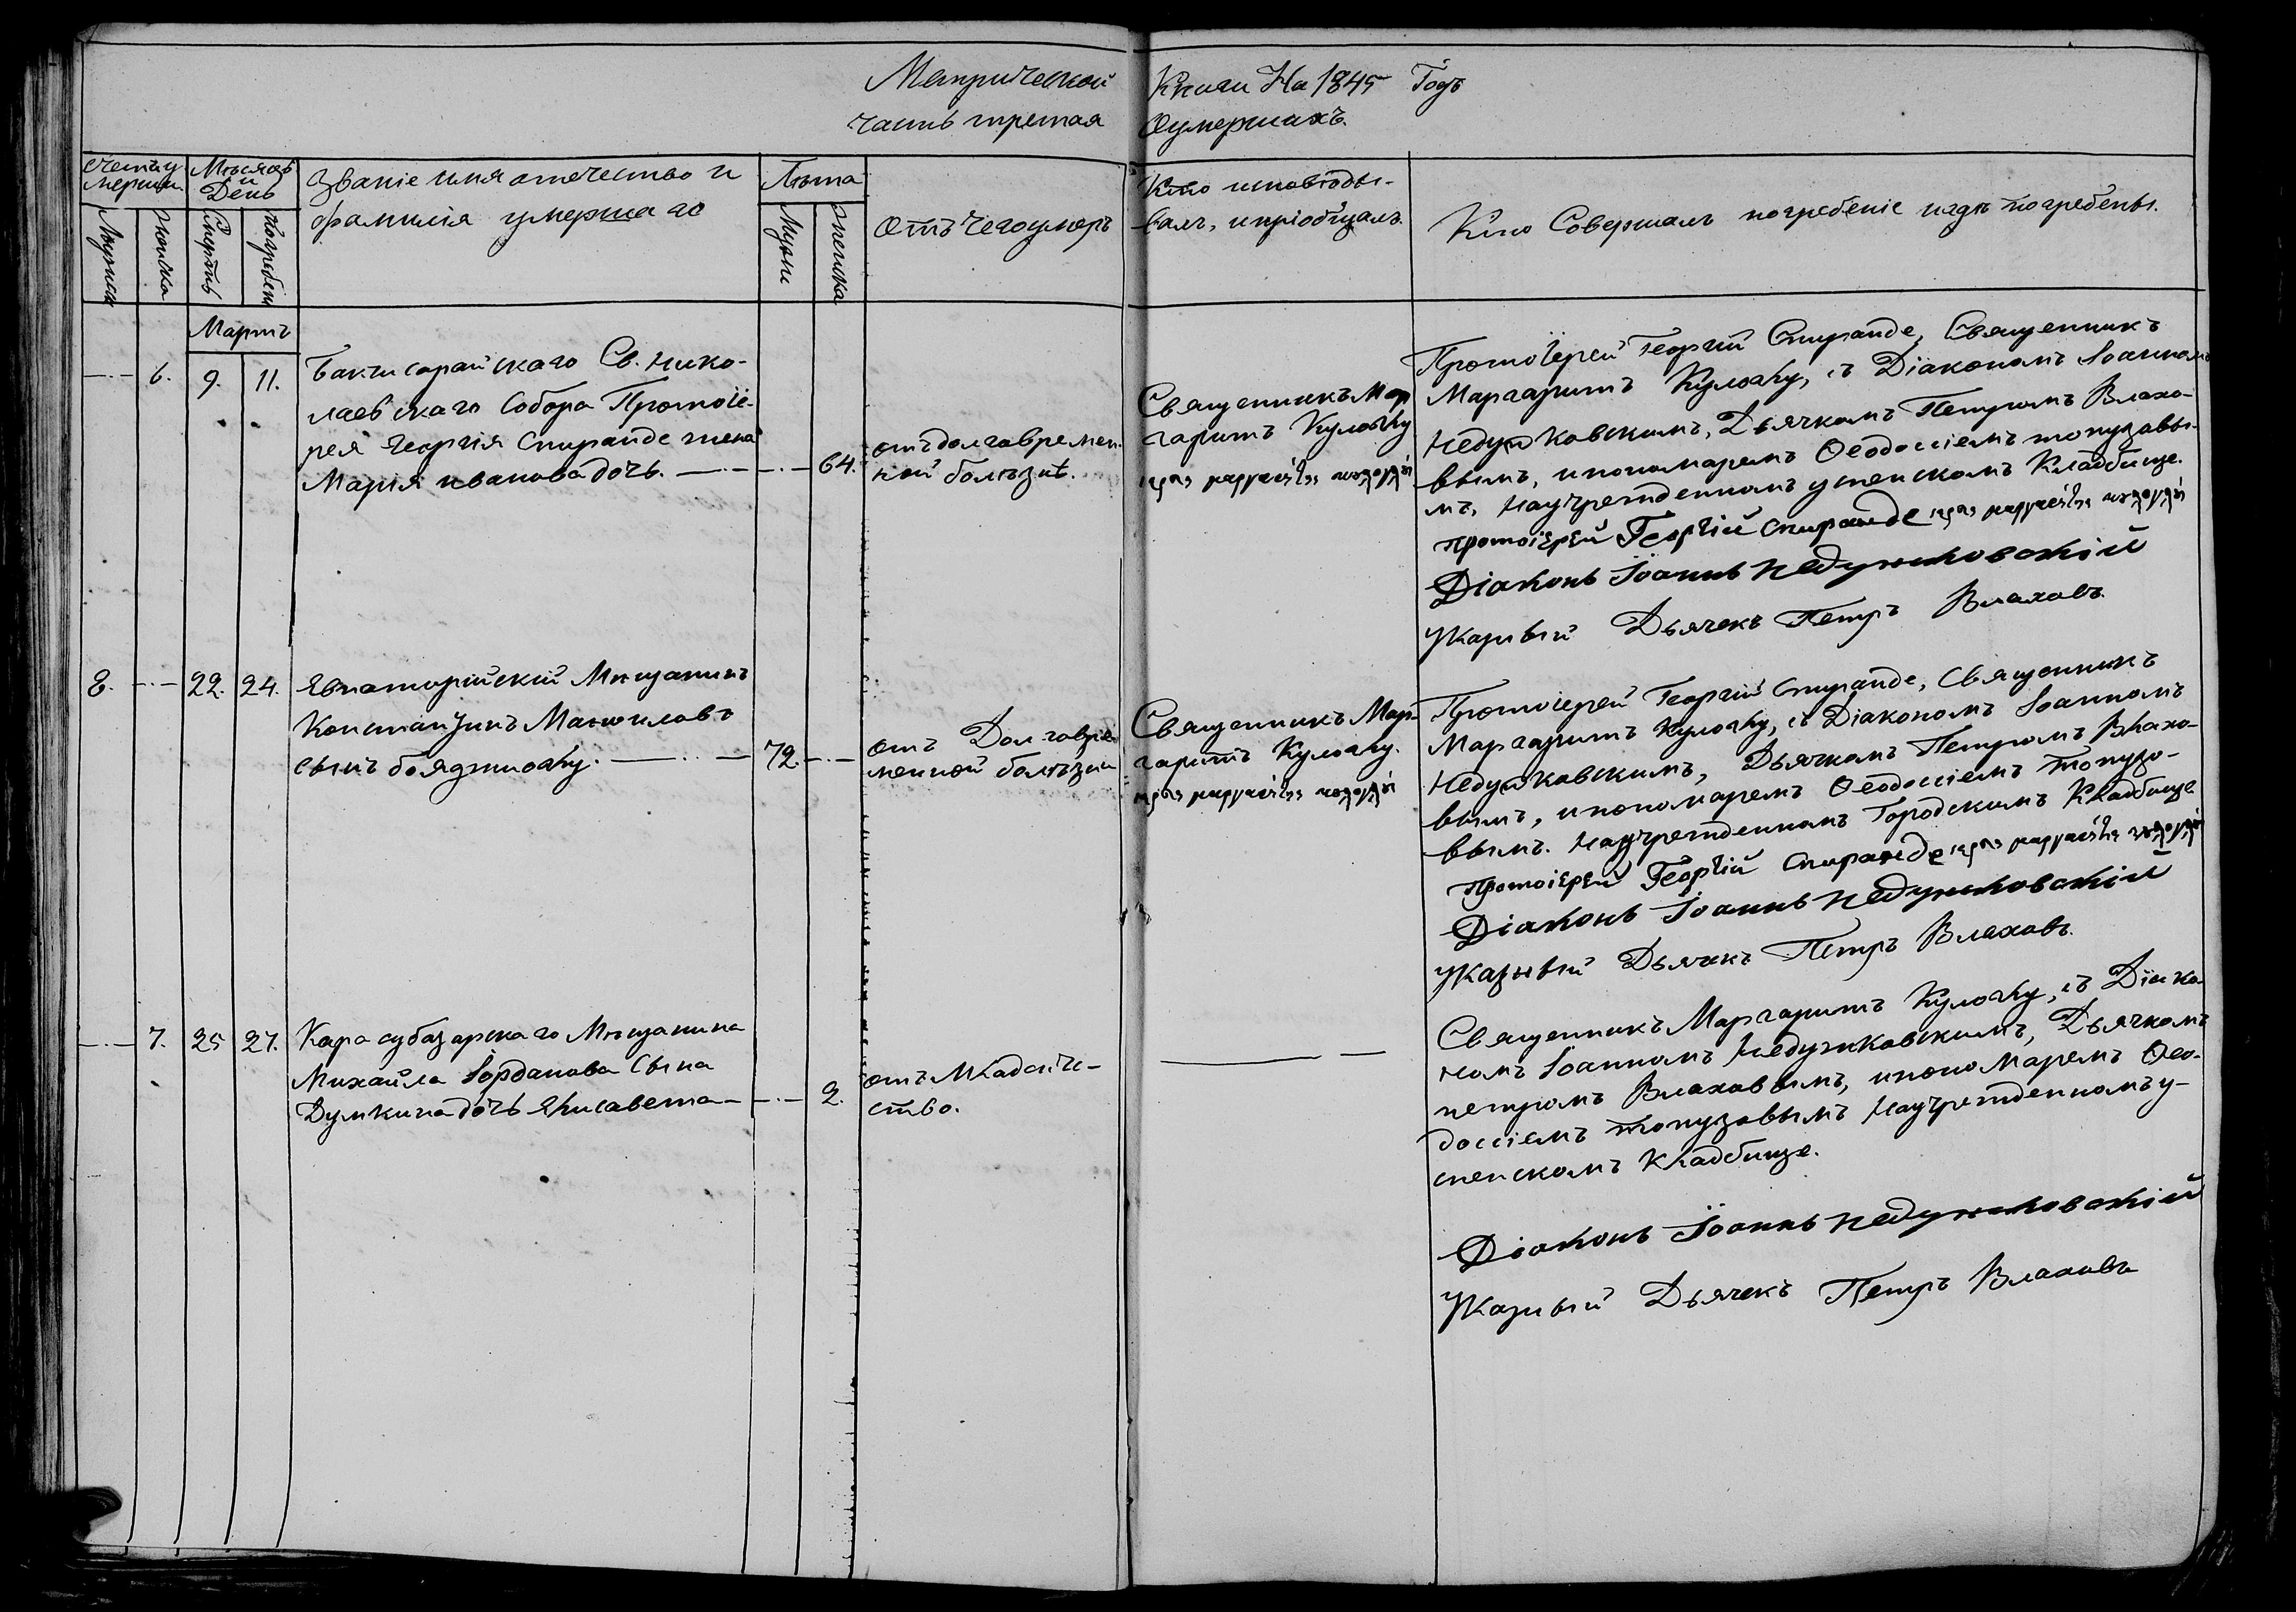 Метрической Книги На 1845 Годъ
часть третая Оумершихъ.
Счетъ умерши
Мѣсяцъ и День
Званіе имя отечество и фамилія умершаго
Лѣта
Отъ чего умеръ
Кто исповѣды-
валъ, и пріобщалъ.
Кто Совершалъ погребеніе и гдѣ погребены.
Мужска
Женска
Смерть
Погребен
Мужс
Женска
Мартъ
6. 9. 11.
Бакчисарайскаго Св. Нико-
лаевскаго Собора Протоіе-
рея Георгія Спиранде жена
Марія иванова дочь. 64.
отъ долговремен-
ной болѣзнѣ.
Священникъ Мар
гаритъ Кулоглу
Протоіерей Георгій Спиранде, Священникъ
Маргаритъ Кулоглу, съ Діакономъ Іоанномъ
Недужковскимъ, Дьячкомъ Петромъ Влахо-
вымъ, ипономаремъ Ѳеодосіемъ топузовы-
мъ, научрежденномъ успенскомъ Кладбище.
протоіерей Георгій Спиранде
Діаконъ Іоаннъ Недужковскій
Указный Дьячекъ Петръ Влаховъ
8. 22. 24.
Явпаторійскій Мѣщанинъ
Константинъ Маноиловъ
сынъ бояджиоглу. 72.
отъ Долговре
менной болѣзни
Священникъ Мар-
гаритъ Кулоглу.
Протоіерей Георгій Спиранде, Священникъ
Маргаритъ Кулоглу, съ Діакономъ Іоанномъ
Недужковскимъ, Дьячкомъ Петромъ Влахо-
вымъ, ипономаремъ Ѳеодосіемъ Топузо-
вымъ. Научрежденномъ Городскимъ Кладбище
протоіерей Георгій Спиранде
Діаконъ Іоаннъ Недужковскій
Указный Дьячекъ Петръ Влаховъ.
7. 25 27.
Карасубазарскаго Мѣщанина
Михайла Іорданова Сына
Думкина дочь Ялисавета 2.
отъ Младенче-
ство.
Священникъ Маргаритъ Кулоглу, съ Діако
номъ Іоанномъ Недужковскимъ, Дьячкомъ
петромъ Влаховымъ, ипономаремъ Ѳео-
досіемъ топузовымъ Научрежденномъ у-
спенскомъ Кладбище.
Діаконъ Іоаннъ Недужковскій
Указный Дьячекъ Петръ Влаховъ